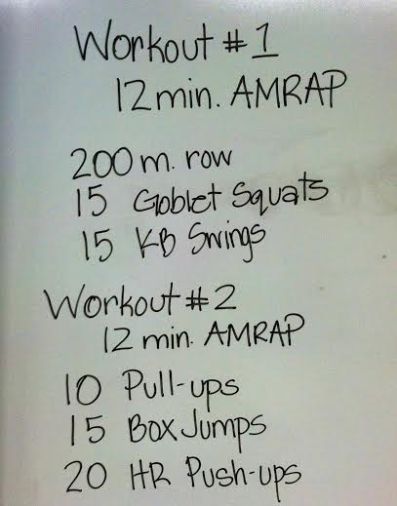 Workout #1
12 min. AMRAP
200 m. row
15 Goblet Squats
15 KB Swings
Workout #2
12 min. AMRAP
10 Pull-ups
15 Box Jumps
20 HR Push-ups